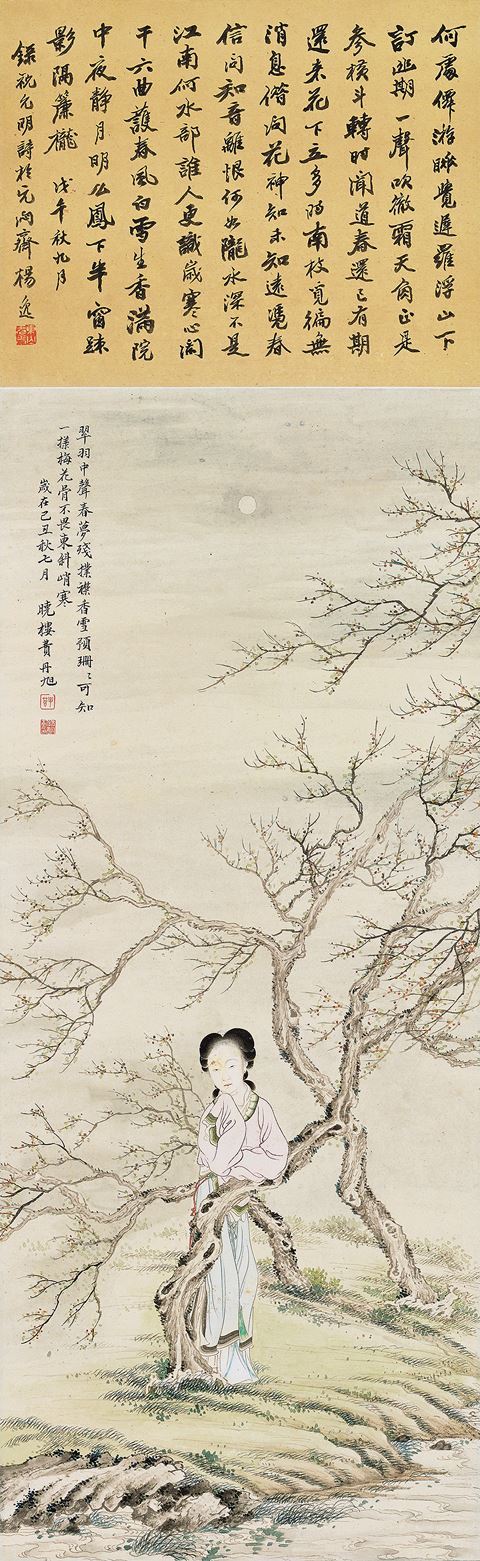 何處僊游睡覺遲羅浮山下
訂幽期一聲吹徹霜天角正是
參橫斗轉時聞道春還已有期
還來花下立多時南枝覓徧無
消息借问花神知未知遠憑春
信问知音離恨何如隴水深不是
江南何水部誰人更識歲寒心闌
干六曲護春風白雪生香滿院
中夜靜月明么鳳下半窗疎
影隔簾櫳 戊午秋九月
錄祝允明詩於元尚齋 楊逸
翠羽中聲春夢殘撲襟香雪預珊〻可知
一樣梅花骨不畏東斜峭寒
歲在己丑秋七月 曉樓費丹旭